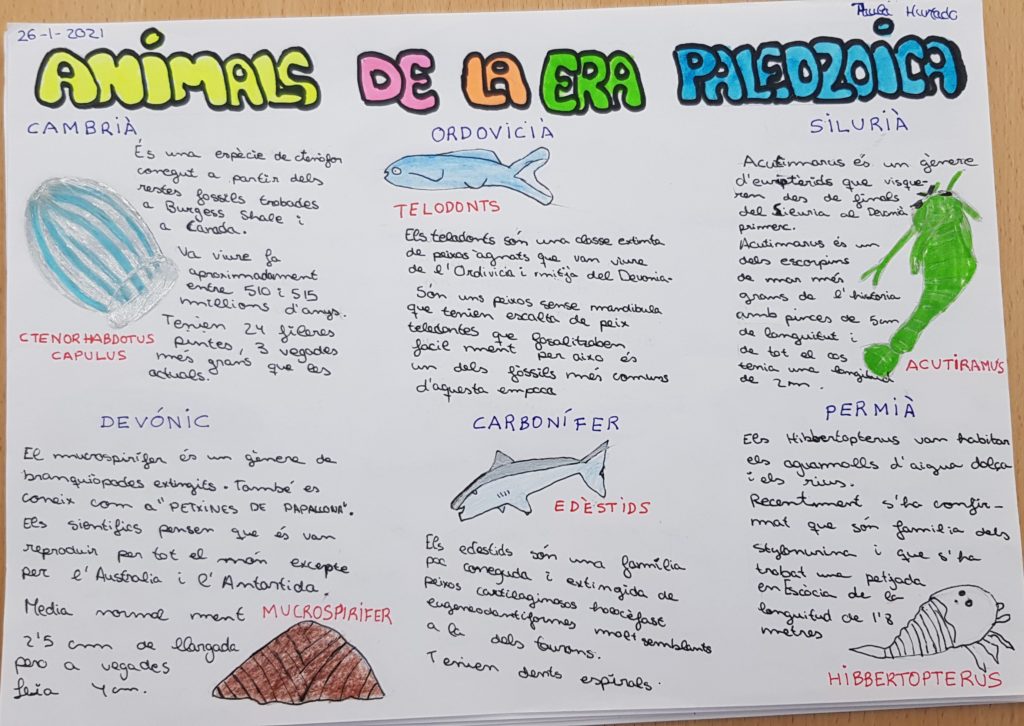 26-1-2021
Paula Hurtado
ANIMALS DE LA ERA PALEOZOICA
CAMBRIÀ
És una espècie de ctenofor
conegut a partir dels
restes fossils trobades
a Burgess Shale i
a Canada.
Va viure fa
aproximadament
entre 510 i 515
millions d'anys.
Tenien 24 filares
puntes, 3 vegades
més grans que les
actuals.
CTENORHABDOTUS
CAPULUS
ORDOVICIÀ
TELODONTS
Els teladonts són una classe extinta
de peixos agnats que van viure
de l'Ordovicia i mitja del Devonia.
Són uns peixos sense mandibula
que tenien escalta de peix
teledontes que fosalitzaben
fàcil ment per aixo és
un dels fòssils més comuns
d'aquesta empoca
SILURIÀ
Acutimarus és un gènere
d'euriptèrids que visque-
ren des de finals
del Siluria al Devonià
primerc.
Acutimarus és un
dels escorpins
de mar més
grans de l'història
amb pinces de 5cm
de longuitut i
de tot el cos
tenia una longitud
de 2m.
ACUTIRAMUS
DEVÓNIC
El mucrospirífer és un gènere de
branquiopodes extingits. També es
coneix com a "PETXINES DE PAPALLONA".
Els sientifics pensen que és van
reproduir per tot el món excepte
per l'Australia i l'Antartida.
Media normal ment
2'5 cm de llargada
pero a vegades
feia 4cm.
MUCROSPIRIFER
CARBONÍFER
EDÈSTIDS
Els edestids són una família
poc coneguda i extingida de
peixos cartilaginosos holocèfast
eugeneodontiformes molt semblants
a la dels taurons.
Tenien dents espirals.
PERMIÀ
Els Hibbertopterus van habitar
els aguamolls d'aigua dolça
i els rius.
Recentment s'ha confir-
mat que són familia dels
stylonurina i que s'ha
trobat una petjada
en Escòcia de la
longuitud de 1'8
metres
HIBBERTOPTERUS